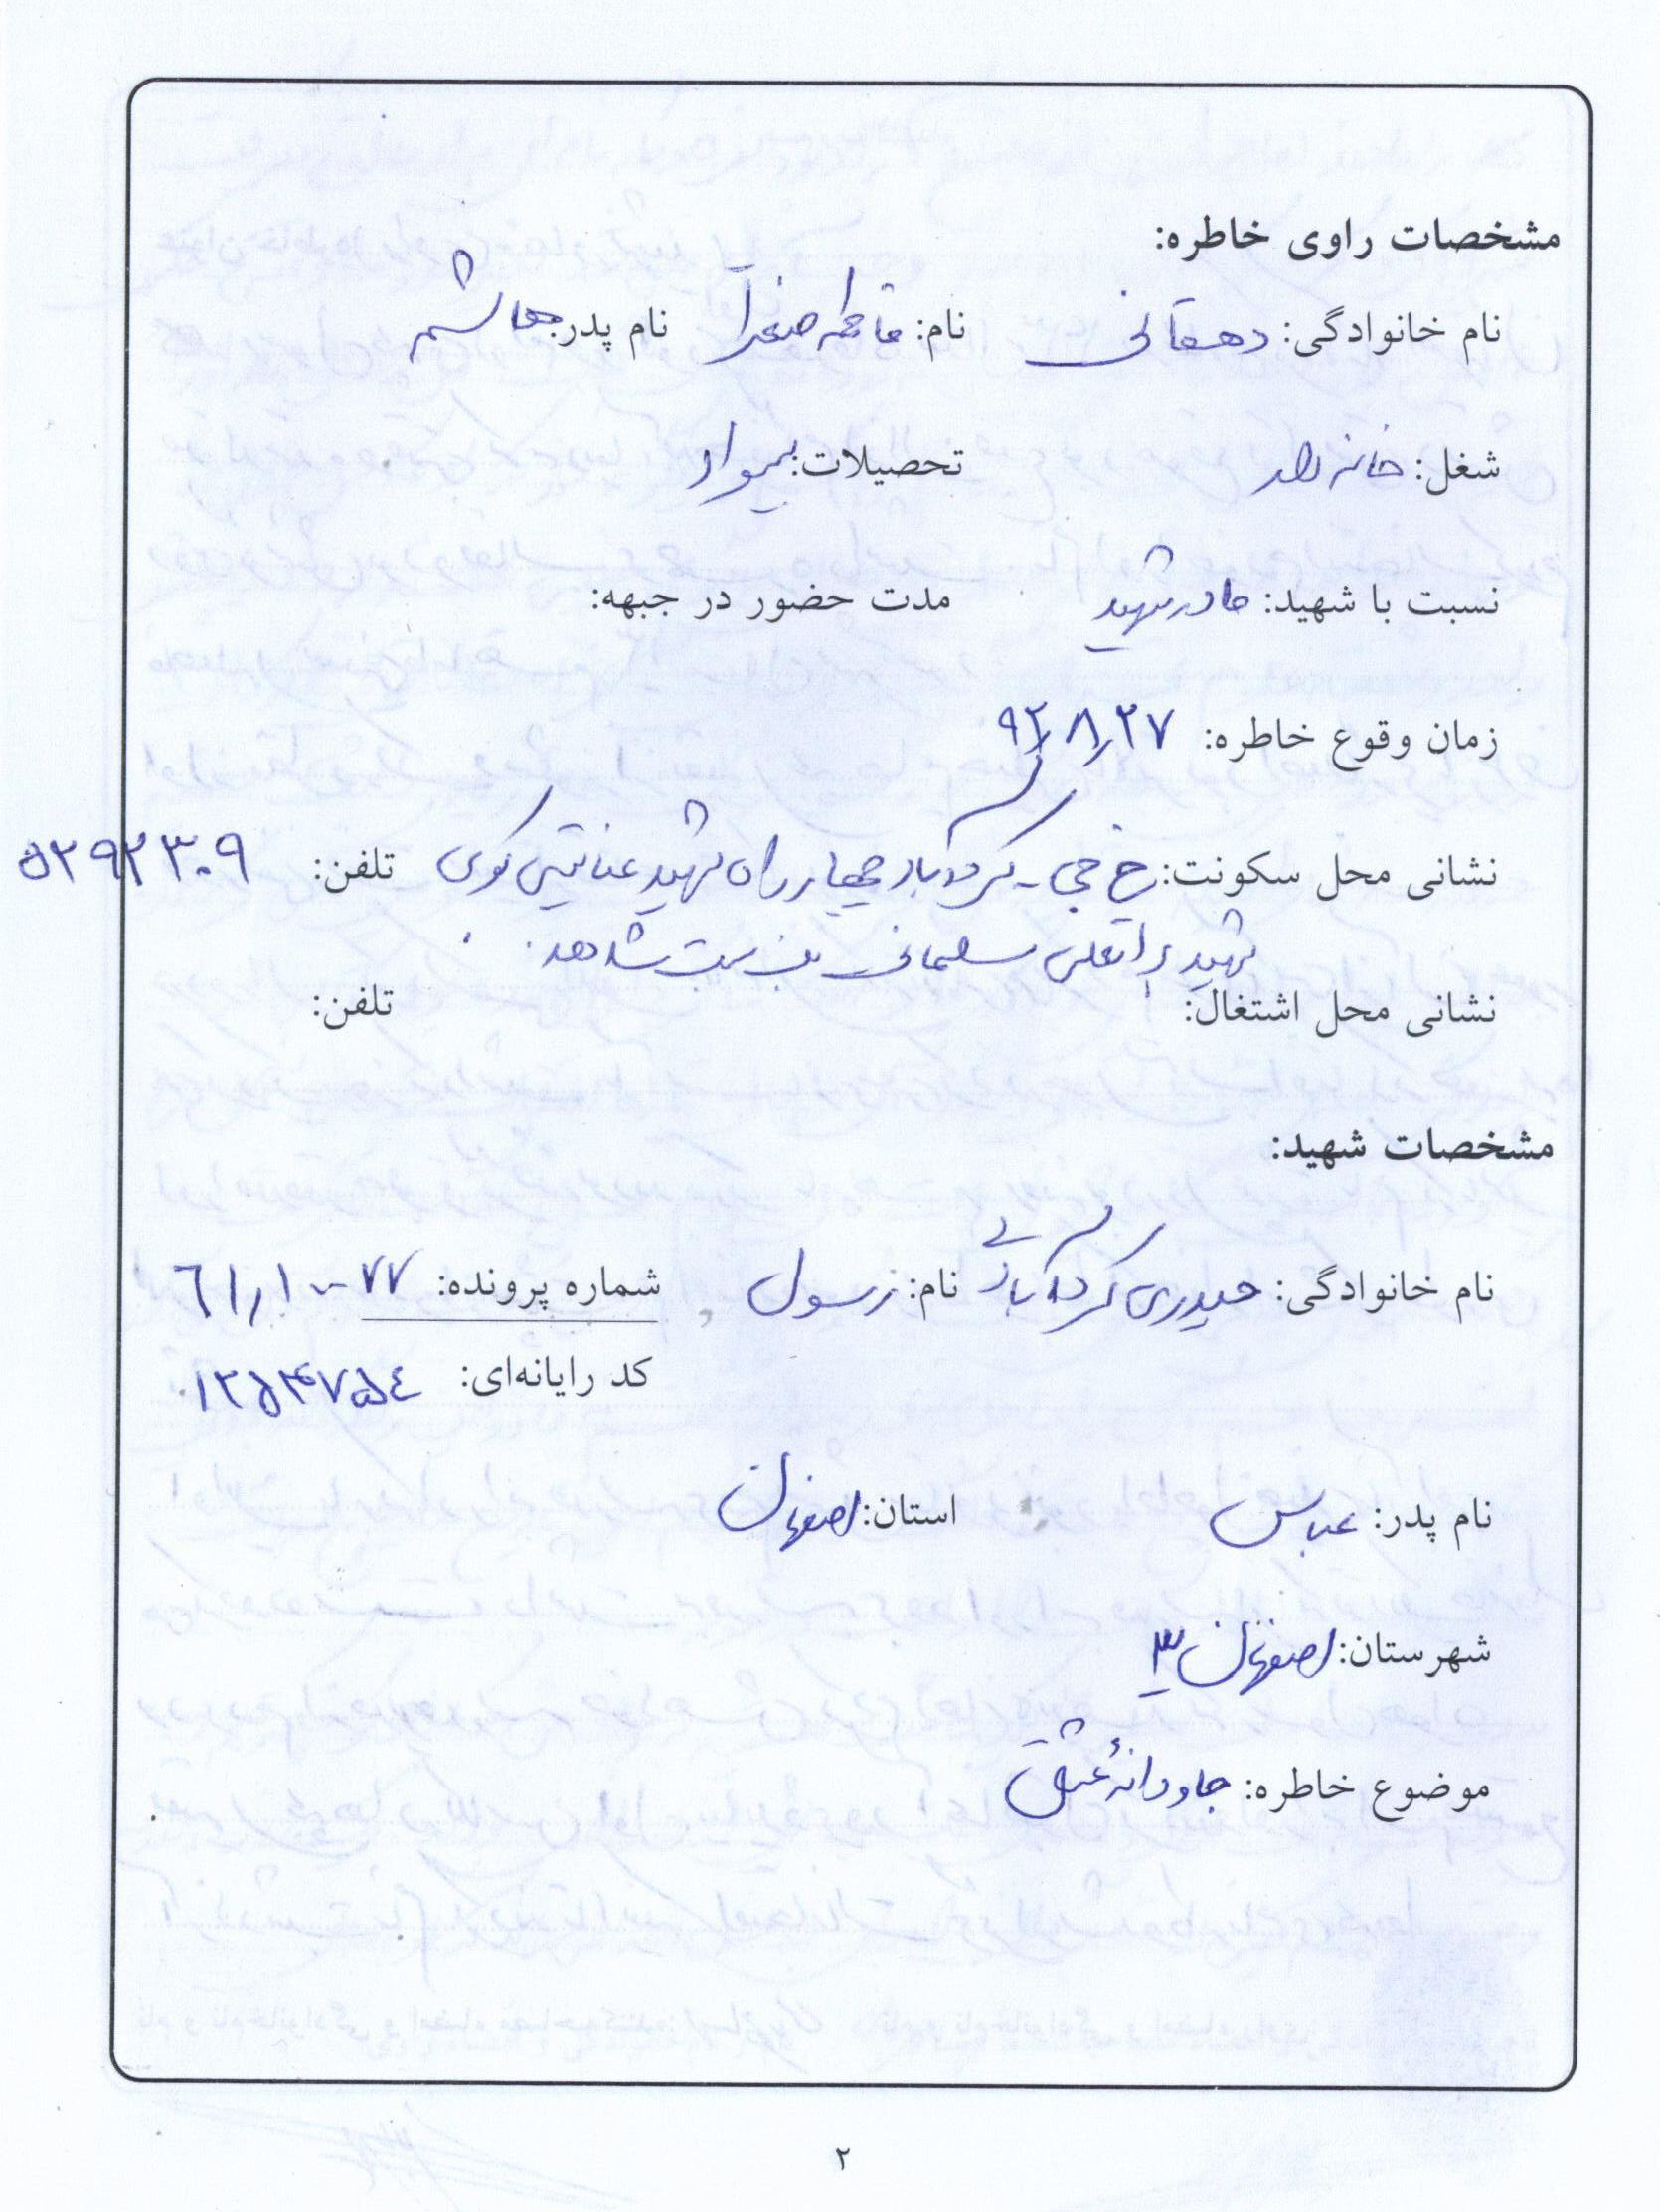 مشخصات راوی خاطره:
نام خانوادگی: دهقانی نام: فاطمه صغرا نام پدر: هاشم
شغل: خانه دار تحصیلات: بیسواد
نسبت با شهید: مادر شهید مدت حضور در جبهه:
زمان وقوع خاطره: ۹۲/۸/۲۷
نشانی محل سکونت: خ جی - گردآباد چهارراه شهید عنایتی کوی تلفن: ۵۲۹۲۳۰۹
شهید براتعلی سلیمانی بن بست شاهد.
نشانی محل اشتغال: تلفن:
مشخصات شهید:
نام خانوادگی: حیدری گردآبادی نام: رسول شماره پرونده: ۶۱/۱۰۰۷۷
کد رایانه‌ای: ۱۲۵۴۷۵۴
نام پدر: عباس استان: اصفهان
شهرستان: اصفهان ۳
موضوع خاطره: جاودانهٔ عشق
۲